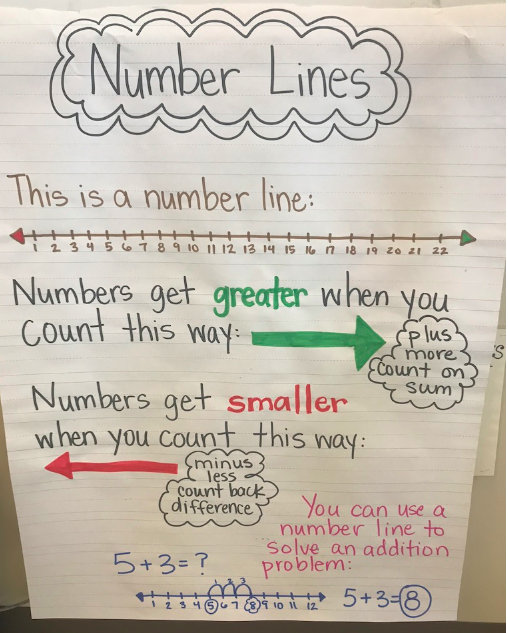 Number Lines
This is a number line:
1 2 3 4 5 6 7 8 9 10 11 12 13 14 15 16 17 18 19 20 21 22
Numbers get greater when you
count this way:
plus
more
count on
sum
Numbers get smaller
when you count this way:
minus
less
count back
difference
You can use a
number line to
solve an addition
problem:
5+3=?
1 2 3
1 2 3 4 5 6 7 8 9 10 11 12
5+3=8